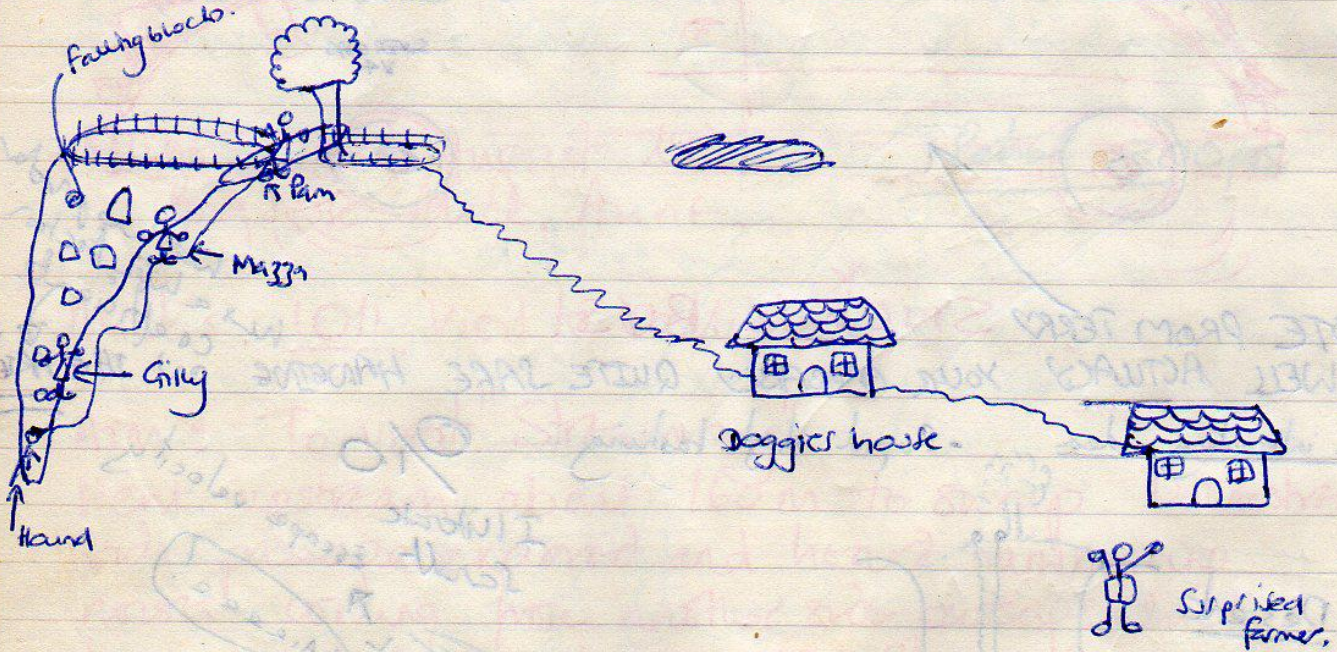 Falling blocks.
Pam
Mazza
Gilly
Hound
Doggies house.
Surprised
farmer.